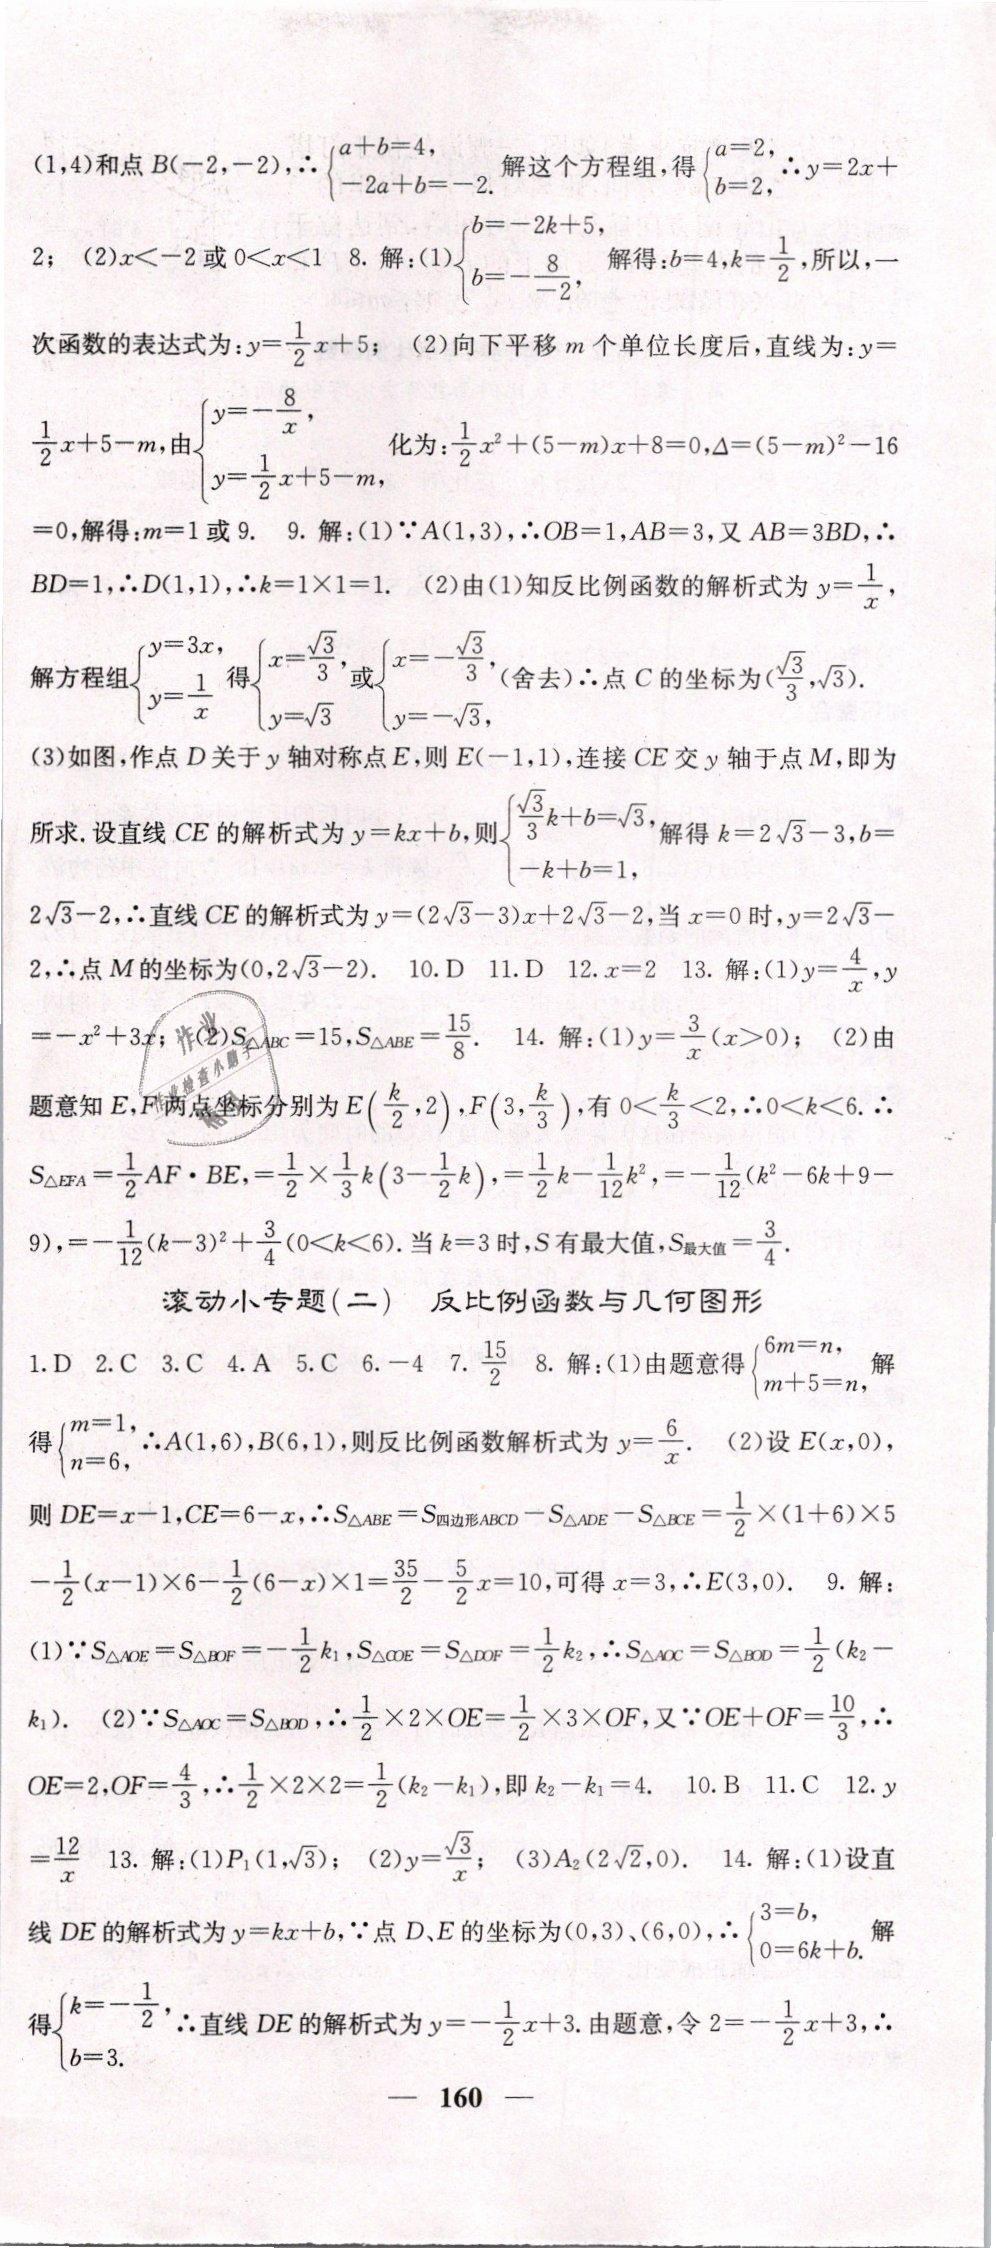 (1,4)和点 B(−2,−2),∴{a+b=4, −2a+b=−2. 解这个方程组,得{a=2, b=2, ∴y=2x+
2; (2)x<−2或0<x<1 8. 解:(1){b=−2k+5, b=−8/−2, 解得:b=4,k=1/2,所以,一
次函数的表达式为:y=1/2x+5; (2)向下平移 m 个单位长度后,直线为:y=
1/2x+5−m,由{y=−8/x, y=1/2x+5−m, 化为:1/2x²+(5−m)x+8=0,Δ=(5−m)²−16
=0,解得:m=1 或 9. 9. 解:(1)∵A(1,3),∴OB=1,AB=3,又 AB=3BD,∴
BD=1,∴D(1,1),∴k=1×1=1. (2)由(1)知反比例函数的解析式为 y=1/x,
解方程组{y=3x, y=1/x 得{x=√3/3, y=√3 或{x=−√3/3, y=−√3, (舍去)∴点 C 的坐标为(√3/3,√3).
(3)如图,作点 D 关于 y 轴对称点 E,则 E(−1,1),连接 CE 交 y 轴于点 M,即为
所求. 设直线 CE 的解析式为 y=kx+b,则{√3/3k+b=√3, −k+b=1, 解得 k=2√3−3,b=
2√3−2,∴直线 CE 的解析式为 y=(2√3−3)x+2√3−2,当 x=0 时,y=2√3−
2,∴点 M 的坐标为(0,2√3−2). 10. D 11. D 12. x=2 13. 解:(1)y=4/x,y
=−x²+3x; (2)S△ABC=15,S△ABE=15/8. 14. 解:(1)y=3/x(x>0); (2)由
题意知 E,F 两点坐标分别为 E(k/2,2),F(3,k/3),有 0<k/3<2,∴0<k<6. ∴
S△EFA=1/2AF·BE,=1/2×1/3k(3−1/2k),=1/2k−1/12k²,=−1/12(k²−6k+9−
9),=−1/12(k−3)²+3/4(0<k<6). 当 k=3 时,S 有最大值,S最大值=3/4.
滚动小专题(二) 反比例函数与几何图形
1. D 2. C 3. C 4. A 5. C 6. −4 7. 15/2 8. 解:(1)由题意得{6m=n, m+5=n, 解
得{m=1, n=6, ∴A(1,6),B(6,1),则反比例函数解析式为 y=6/x. (2)设 E(x,0),
则 DE=x−1,CE=6−x,∴S△ABE=S四边形ABCD−S△ADE−S△BCE=1/2×(1+6)×5
−1/2(x−1)×6−1/2(6−x)×1=35/2−5/2x=10,可得 x=3,∴E(3,0). 9. 解:
(1)∵S△AOE=S△BOF=−1/2k₁,S△COE=S△DOF=1/2k₂,∴S△AOC=S△BOD=1/2(k₂−
k₁). (2)∵S△AOC=S△BOD,∴1/2×2×OE=1/2×3×OF,又∵OE+OF=10/3,∴
OE=2,OF=4/3,∴1/2×2×2=1/2(k₂−k₁),即 k₂−k₁=4. 10. B 11. C 12. y
=12/x 13. 解:(1)P₁(1,√3); (2)y=√3/x; (3)A₂(2√2,0). 14. 解:(1)设直
线 DE 的解析式为 y=kx+b,∵点 D、E 的坐标为(0,3)、(6,0),∴{3=b, 0=6k+b. 解
得{k=−1/2, b=3. ∴直线 DE 的解析式为 y=−1/2x+3. 由题意,令 2=−1/2x+3,∴
— 160 —
作业
作业检查小助手